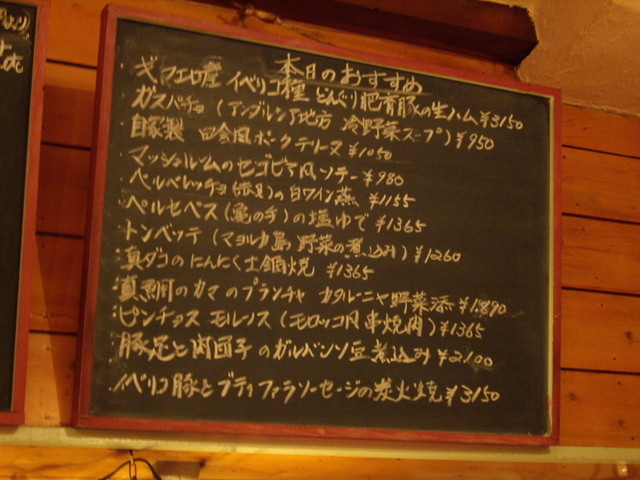 本日のおすすめ
ギフエロ産 イベリコ種 どんぐり肥育豚の生ハム ¥3150
ガスパチョ (アンダルシア地方 冷野菜スープ) ¥950
自家製 田舎風ポークテリーヌ ¥1050
マッシュルームのセゴビア風ソテー ¥980
ベルベレッチョ (赤貝) の白ワイン蒸 ¥1155
ペルセベス (亀の手) の塩ゆで ¥1365
トンベッテ (マヨルカ島 野菜の煮込み) ¥1260
真ダコのにんにく土鍋焼 ¥1365
真鯛のカマのプランチャ カタルーニャ野菜添 ¥1890
ピンチョス モルノス (モロッコ風串焼肉) ¥1365
豚足と肉団子のガルバンソ豆煮込み ¥2100
イベリコ豚とブティファラソーセージの炭火焼 ¥3150